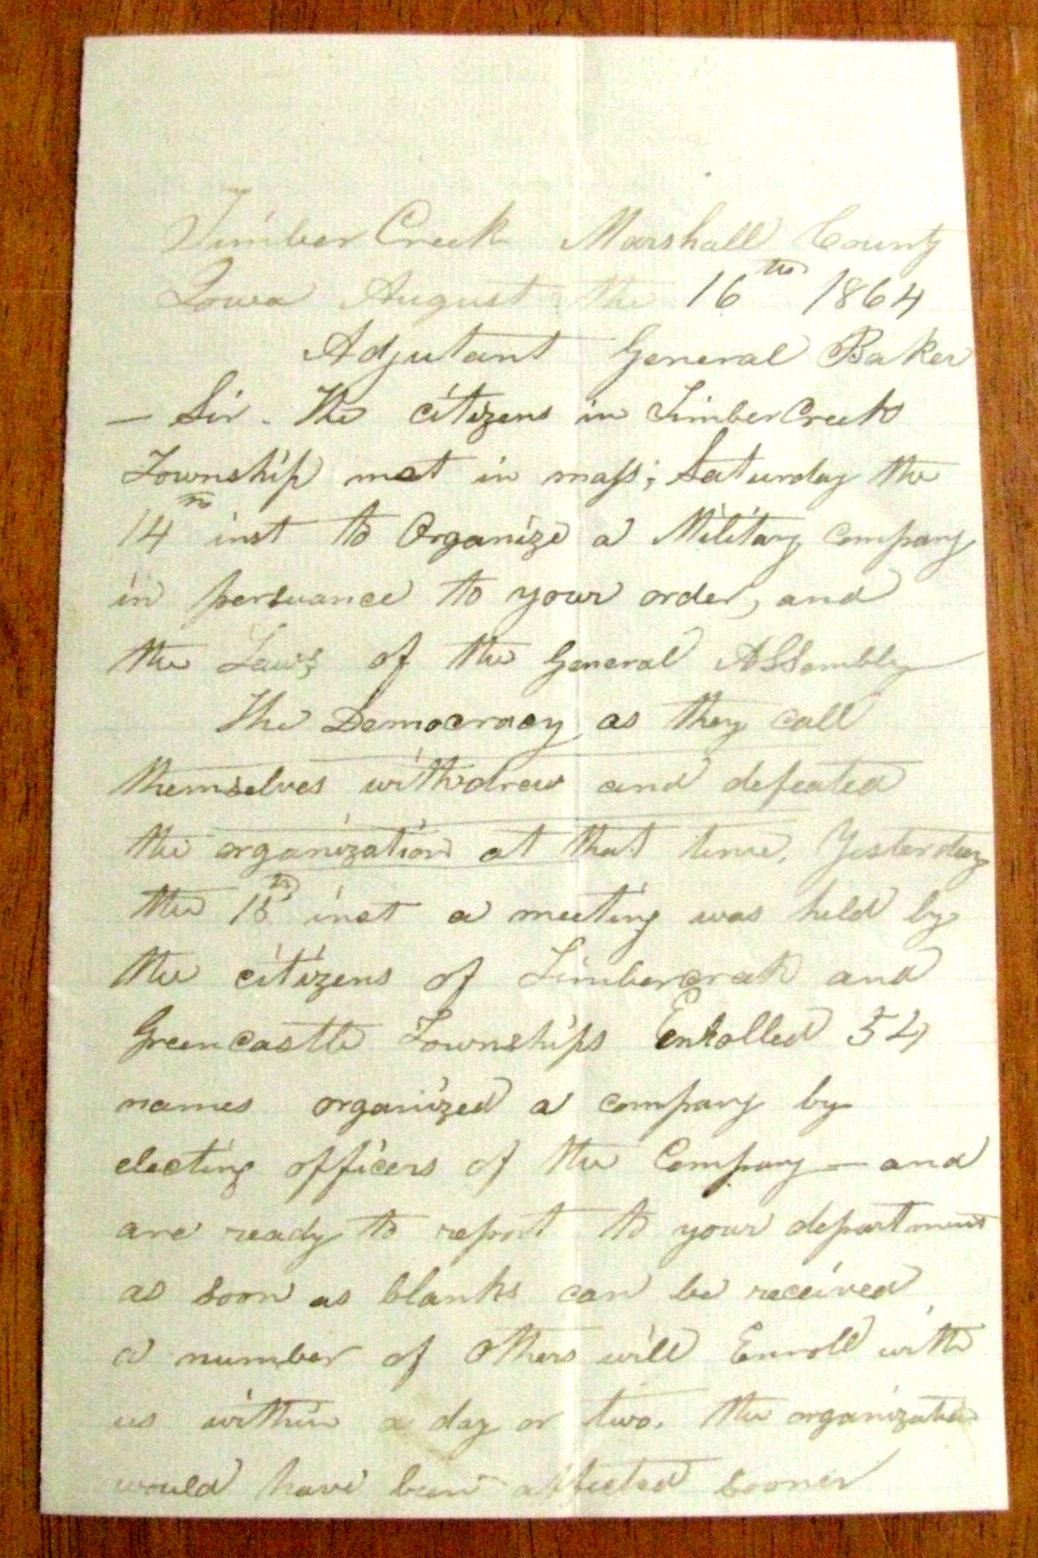 Timber Creek Marshall County
Iowa August the 16th 1864
Adjutant General Baker
— Sir - The citizens in TimberCreek
Township met in mass; Saturday the
14th inst to Organize a Military company
in persuance to your order, and
the Laws of the General Assembly
The Democracy as they call
themselves withdrew and defeated
the organization at that time. Yesterday
the 15th inst a meeting was held by
the citizens of Timbercreek and
Greencastle Townships Enrolled 54
names organized a company by
electing officers of the Company — and
are ready to report to your department
as soon as blanks can be received
a number of others will Enroll with
us within a day or two. The organization
would have been affected sooner